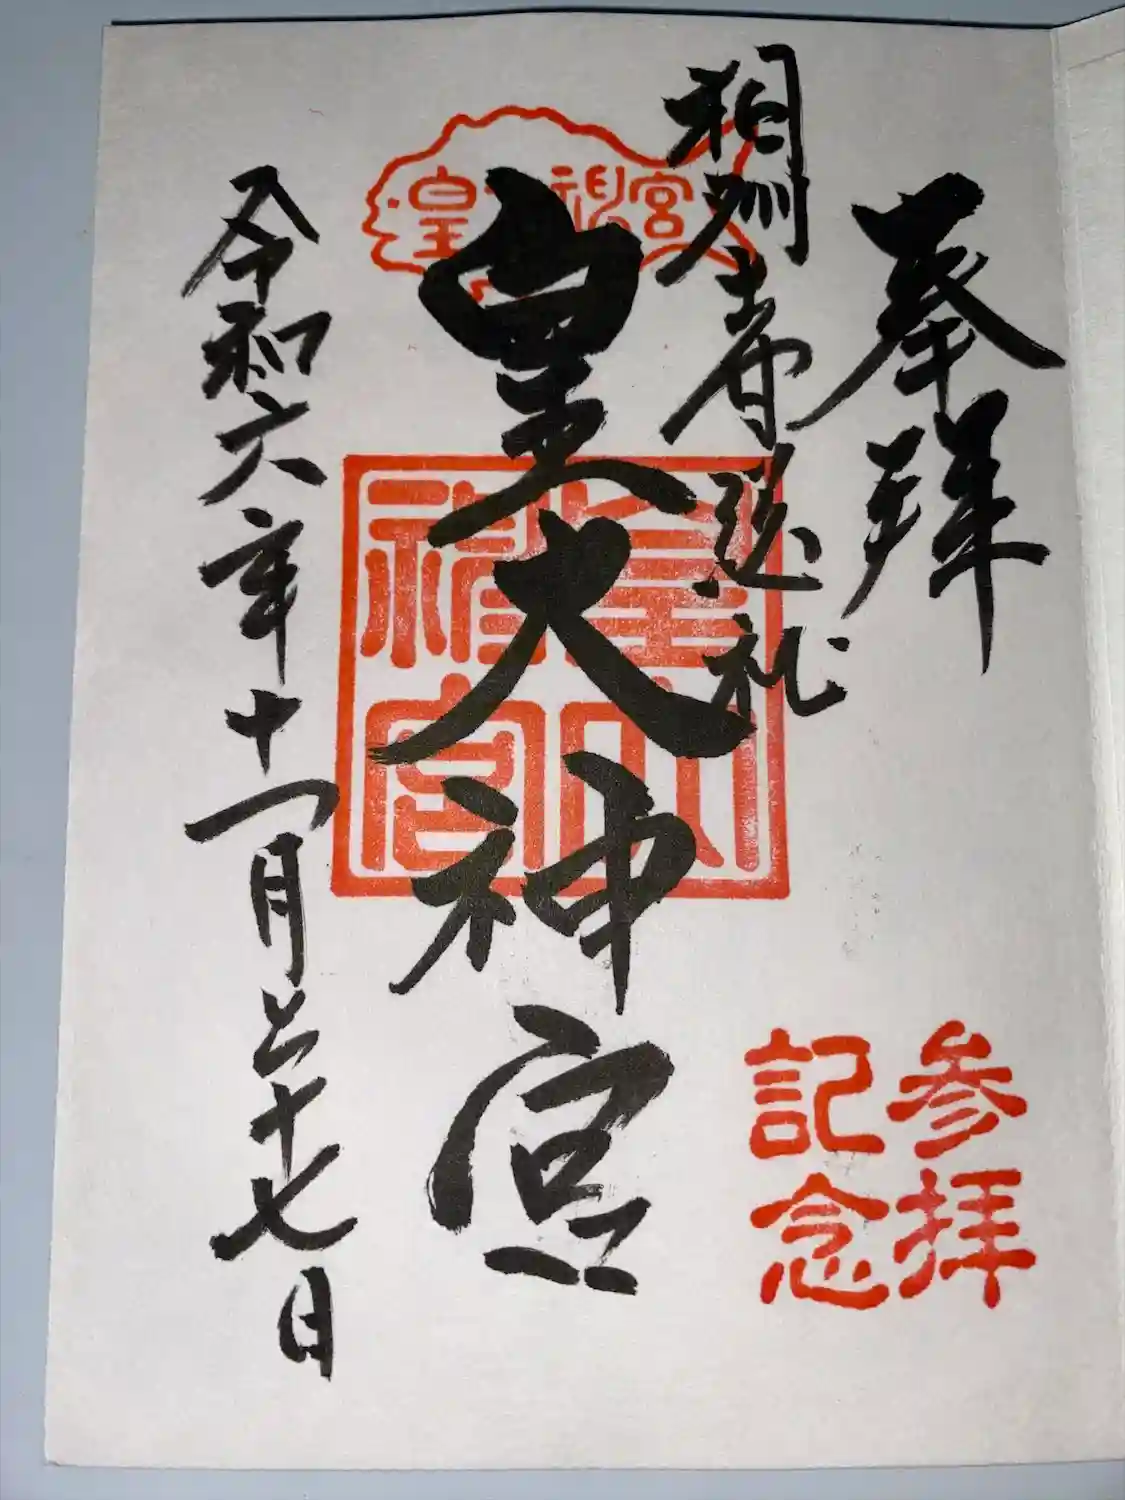 奉拝
参拝
記念
相州巡礼
皇神宮
皇大神宮
皇大神宮
令和六年十一月二十七日